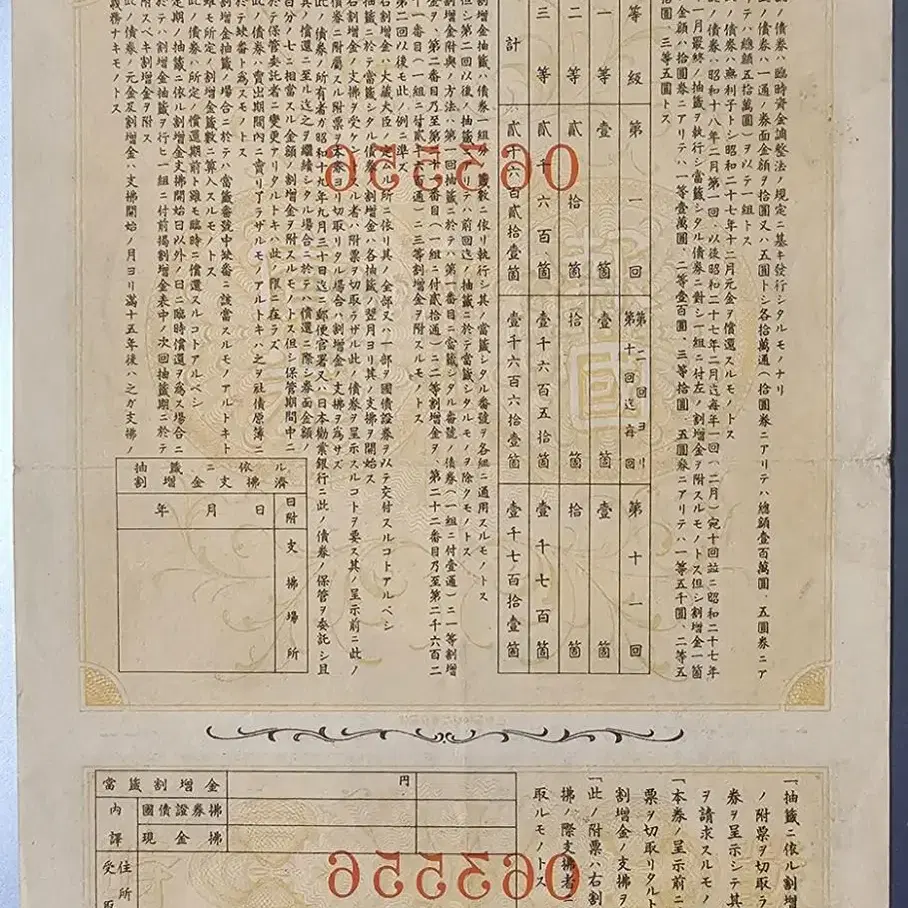 ノ債券ハ臨時資金調整法ノ規定ニ基キ發行シタルモノナリ
ノ債券ハ一通ノ券面金額ヲ拾圓又ハ五圓トシ各拾萬通(拾圓券ニアリテハ總額壹百萬圓、五圓券ニア
リテハ總額五拾萬圓)ヲ以テ一組トス
ノ債券ハ無利子トシ昭和二十七年十二月元金ヲ償還スルモノトス
ノ債券ハ昭和十八年二月第一回、以後昭和二十七年二月迄每年一回(二月)宛十回竝ニ昭和二十七年
月最終ノ抽籤ヲ執行シ當籤シタル債券ニ對シ一組ニ付左ノ割增金ヲ附スルモノトス但シ割增金一箇
金額ハ拾圓券ニアリテハ一等壹萬圓、二等壹百圓、三等拾圓、五圓券ニアリテハ一等五千圓、二等五
拾圓、三等五圓トス
等級 第一回 第二回ヨリ第十回迄每回 第十一回
一等 壹箇 壹箇 壹箇
二等 貳拾箇 拾箇 拾箇
三等 貳千六百箇 壹千六百五拾箇 壹千七百箇
計 貳千六百貳拾壹箇 壹千六百六拾壹箇 壹千七百拾壹箇
割增金抽籤ハ債券一組分ノ籤數ニ依リ執行シ其ノ當籤シタル番號ヲ各組ニ通用スルモノトス
但シ第二回以後ノ抽籤ニアリテハ前回迄ノ抽籤ニ於テ當籤シタルモノヲ除クモノトス
割增金附與ノ方法ハ第一回抽籤ニ於テハ第一番目ニ當籤シタル番號ノ債券(一組ニ付壹通)ニ一等割增
金ヲ、第二番目乃至第二十一番目(一組ニ付貳拾通)ニ二等割增金ヲ、第二十二番目乃至第二千六百二
十一番目(一組ニ付貳千六百通)ニ三等割增金ヲ附スルモノトス
第二回以後モ此ノ例ニ準ズ
右割增金ハ大藏大臣ノ定ムル所ニ依リ其ノ全部又ハ一部ヲ國債證券ヲ以テ交付スルコトアルベシ
抽籤ニ於テ當籤シタル債券ノ割增金ハ各抽籤ノ翌月ヨリ其ノ支拂ヲ開始ス
割增金ノ支拂ヲ受ケントスル者ハ附票ヲ切取ラザル此ノ債券ヲ呈示スルコトヲ要ス其ノ呈示前ニ此ノ
債券ニ附屬スル附票ヲ本券ヨリ切取リタル場合ハ割增金ノ支拂ヲ爲サズ
此ノ債券ノ所有者ガ昭和十九年九月三十日迄ニ郵便官署又ハ日本勸業銀行ニ此ノ債券ノ保管ヲ委託シ且
其ノ償還ニ至ル迄之ヲ繼續シタル場合ニ於テハ償還ノ際シ券面金額ノ
百分ノ七ニ相當スル金額ノ割增金ヲ附スルモノトス但シ保管期間中ニ
於テ保管委託者ニ變更アリタルトキハ此ノ限ニ在ラズ
此ノ債券ハ賣出期間內ニ賣リ了ラザルモノアルトキハ之ヲ社債原簿ニ
於テ缺番ト爲スモノトス
割增金抽籤ノ場合ニ於テハ當籤番號中缺番ニ該當スルモノアルトキト
雖モ所定ノ割增金籤數ニ算入スルモノトス
此ノ債券ハ所定ノ償還期前ト雖モ臨時ニ償還スルコトアルベシ
定期ノ抽籤ニ依ル割增金支拂開始日以外ノ日ニ臨時償還ヲ爲ス場合ニ
於テハ割增金抽籤ヲ行ヒ一組ニ付前揭割增金表中ノ次回抽籤期ニ於テ
附スベキ割增金ヲ附ス
此ノ債券ノ元金及割增金ハ支拂開始ノ月ヨリ滿十五年後ハ之ガ支拂ノ
義務ナキモノトス
063556
抽籤ニ依ル
割增金支拂濟
日附 年 月 日
支拂場所
一抽籤ニ依ル割增
ノ附票ヲ切取ラ
券ヲ呈示シテ其
ヲ請求スルモノ
一本券ノ呈示前ニ
票ヲ切取リタルト
割增金ノ支拂ヲ
一此ノ附票ハ右割
拂ノ際支拂者ニ
取ルモノトス
當籤割增金 円
內譯 國債證券拂
現金拂
住所
受取
063556